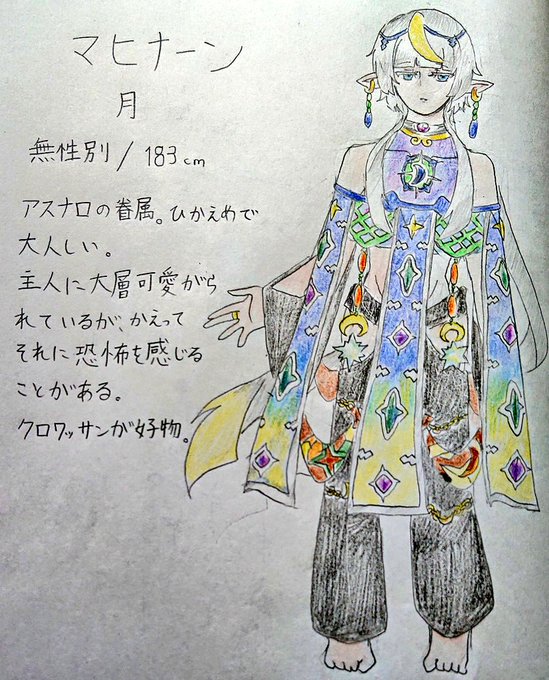 マヒナーン
月
無性別/183cm
アスナロの眷属。ひかえめで
大人しい。
主人に大層可愛がら
れているが、かえって
それに恐怖を感じる
ことがある。
クロワッサンが好物。